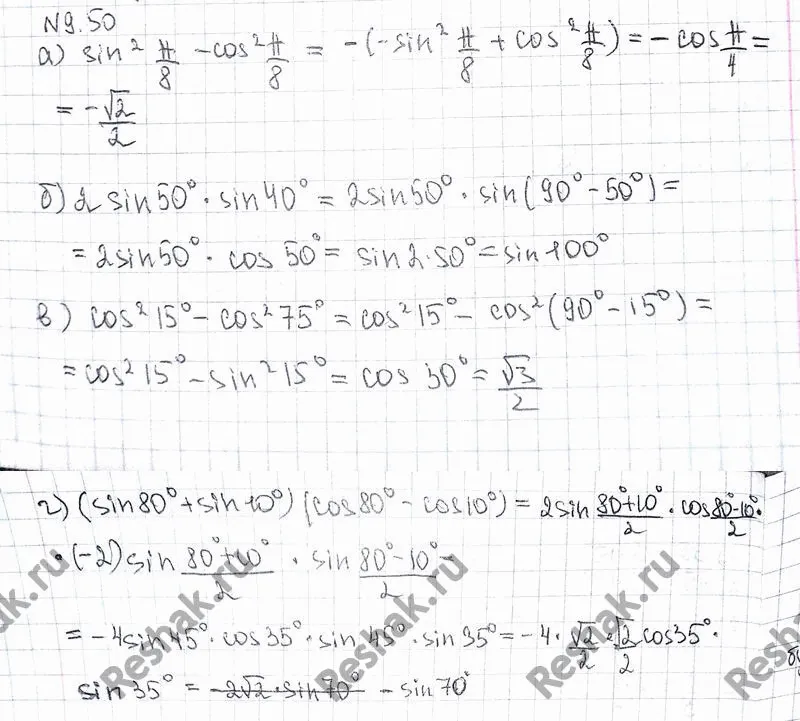 N9.50
а) sin² π/8 - cos² π/8 = -(-sin² π/8 + cos² π/8) = -cos π/4 =
= -√2/2
б) 2 sin50° · sin40° = 2sin50° · sin(90° - 50°) =
= 2sin50° · cos 50° = sin2·50° = sin100°
в) cos² 15° - cos² 75° = cos² 15° - cos² (90° - 15°) =
= cos² 15° - sin² 15° = cos 30° = √3/2
г) (sin80° + sin10°) (cos80° - cos10°) = 2sin 80°+10°/2 · cos 80°-10°/2 ·
· (-2) sin 80°+10°/2 · sin 80°-10°/2 =
= -4sin45° · cos35° · sin45° · sin35° = -4 · √2/2 · √2/2 cos35° ·
sin35° = -2√2 · sin70° - sin70°
Reshak.ru
Reshak.ru
Reshak.ru
Reshak.ru